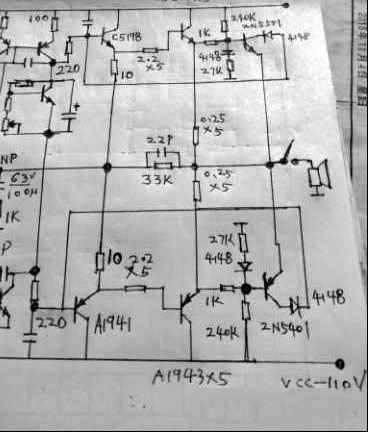 100
220
C5198
10
2.2
×5
1K
240K
2N5551
4148
4148
27K
0.25
×5
22P
33K
0.25
×5
NP
63V
100μ
1K
P
27K
4148
10
2.2
×5
1K
4148
220
A1941
240K
2N5401
A1943×5
VCC-110V